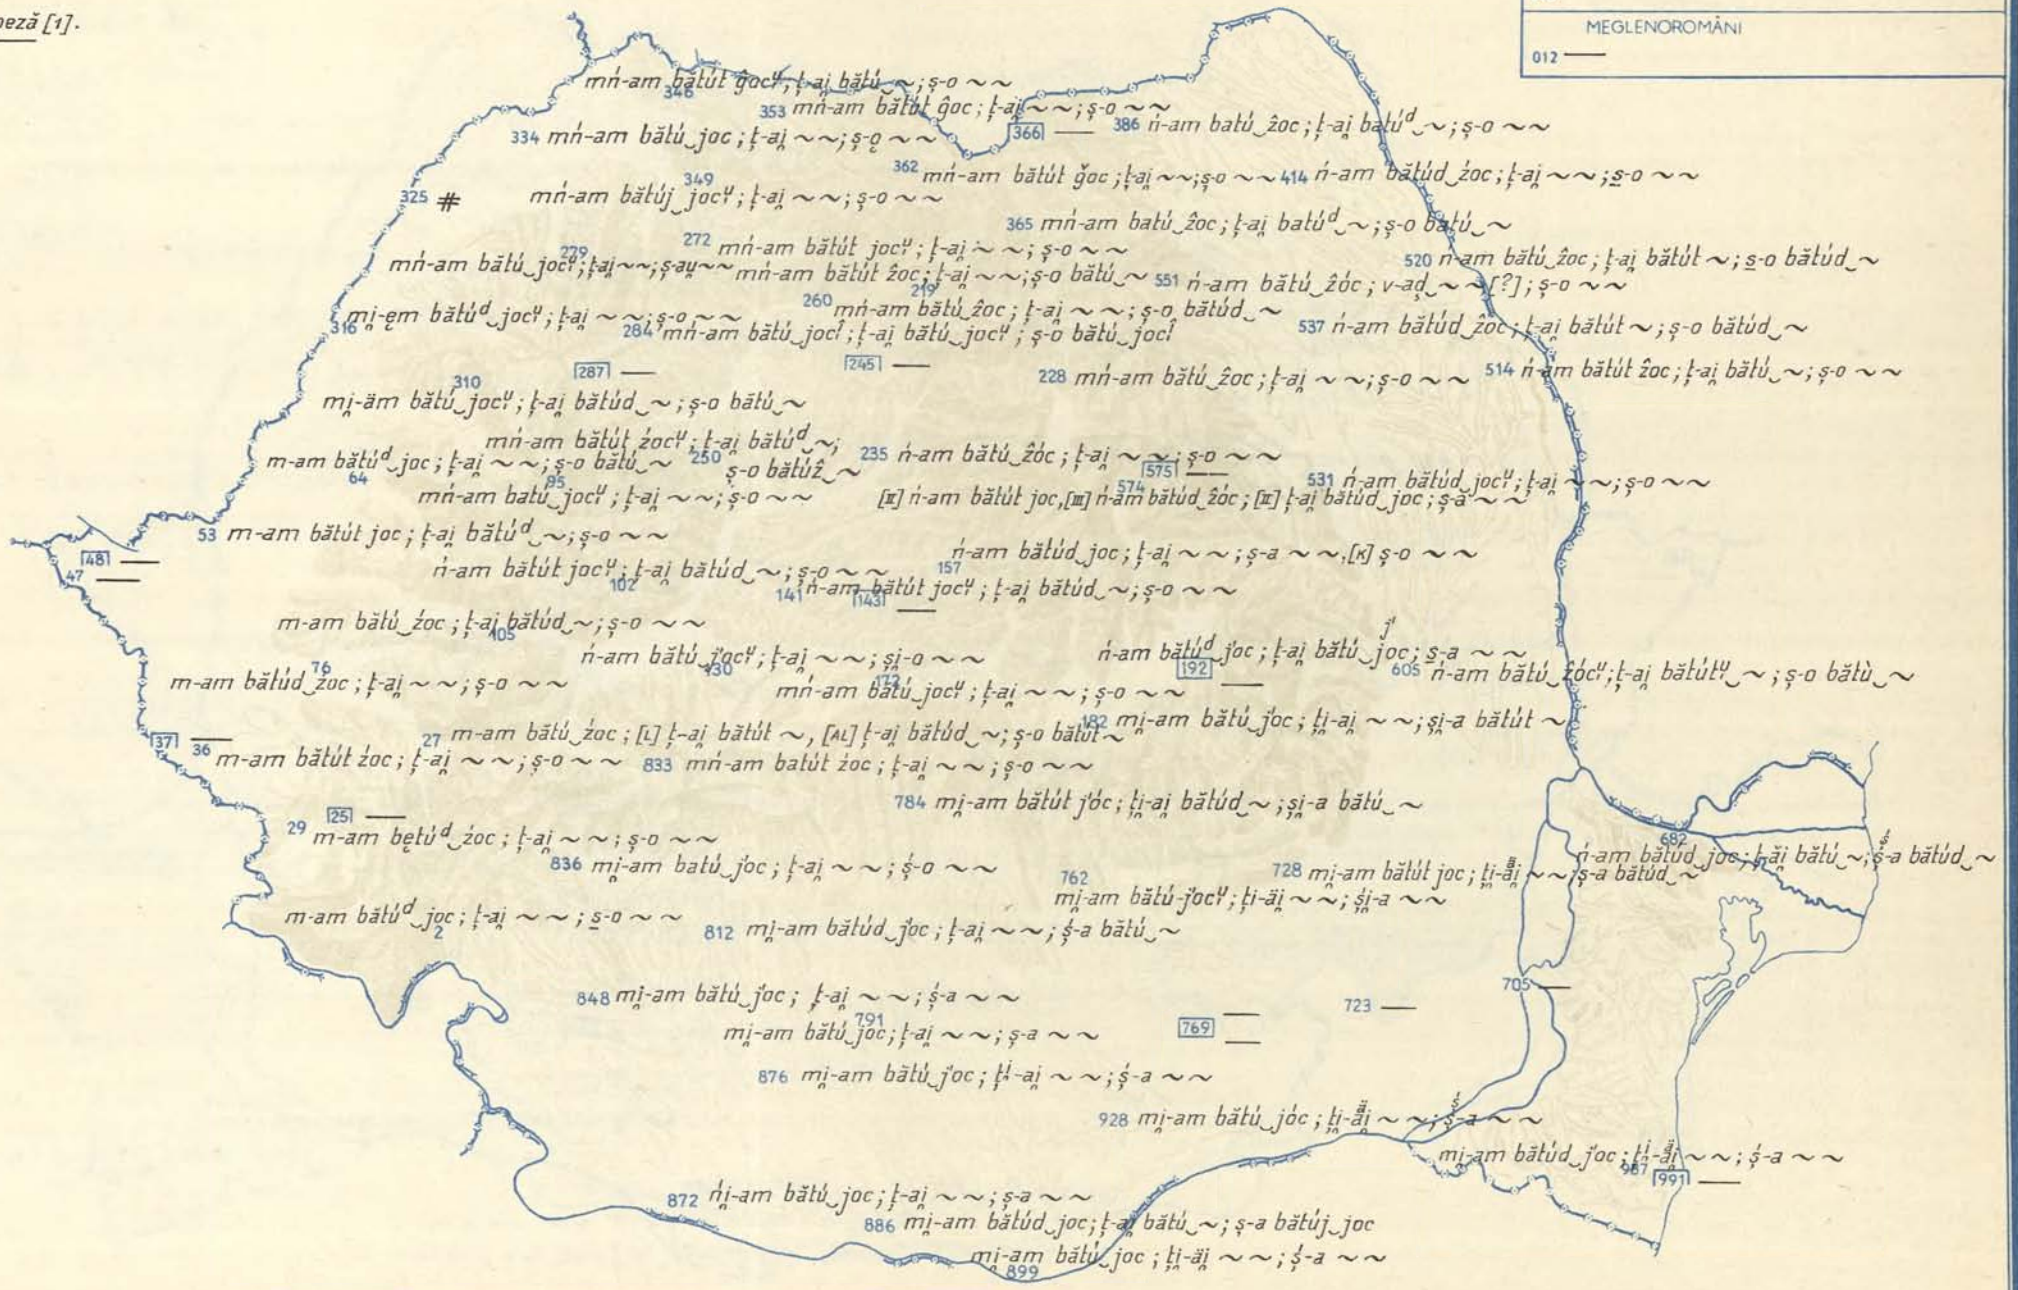 beză [1].
MEGLENOROMÂNI
012 —
mń-am bătút ĝocᵘ̯; ț-ai̯ bătú‿~; ș-o ~ ~
346
353 mń-am bătút ĝoc; ț-ai̯ ~ ~; ș-o ~ ~
366 —
386 ń-am batú‿ẑoc; ț-ai̯ batúᵈ‿~; ș-o ~ ~
334 mń-am bătú‿joc; ț-ai̯ ~ ~; ș-o̯ ~ ~
362 mń-am bătút ğoc; ț-ai̯ ~ ~; ș-o ~ ~
414 ń-am bătúd‿żoc; ț-ai̯ ~ ~; s̲-o ~ ~
325 #
349
mń-am bătúj‿jocᵘ̯; ț-ai̯ ~ ~; ș-o ~ ~
365 mń-am batú‿ẑoc; ț-ai̯ batúᵈ‿~; ș-o batú‿~
272 mń-am bătút jocᵘ̯; ț-ai̯ ~ ~; ș-o ~ ~
279
mń-am bătú‿jocᵘ̯; ț-ai̯ ~ ~; ș-au̯ ~ ~
mń-am bătút ẑoc; ț-ai̯ ~ ~; ș-o bătú‿~
219
520 ń-am bătú‿ẑoc; ț-ai̯ bătút ~; s̲-o bătúd‿~
551 ń-am bătú‿ẑóc; v-aḑ‿~ ~ [?]; ș-o ~ ~
260 mń-am bătú‿ẑoc; ț-ai̯ ~ ~; ș-o bătúd‿~
mi̯-ęm bătúᵈ‿jocᵘ̯; ț-ai̯ ~ ~; ș-o ~ ~
316
284 mń-am bătú‿jocî; ț-ai̯ bătú‿jocᵘ̯; ș-o bătú‿jocî
537 ń-am bătúd‿ẑoc; ț-ai̯ bătút ~; ș-o bătúd‿~
287 —
245 —
228 mń-am bătú‿ẑoc; ț-ai̯ ~ ~; ș-o ~ ~
514 ń-am bătút ẑoc; ț-ai̯ bătú‿~; ș-o ~ ~
310
mi̯-äm bătú‿jocᵘ̯; ț-ai̯ bătúd‿~; ș-o bătú‿~
mń-am bătút żocᵘ̯; ț-ai̯ bătúᵈ‿~;
250 ș-o bătúẑ‿~
235 ń-am bătú‿ẑóc; ț-ai̯ ~ ~; ș-o ~ ~
m-am bătúᵈ‿joc; ț-ai̯ ~ ~; ș-o bătú‿~
64
575 —
531 ń-am bătúd‿jocᵘ̯; ț-ai̯ ~ ~; ș-o ~ ~
95
mń-am batú‿jocᵘ̯; ț-ai̯ ~ ~; ș-o ~ ~
574
[II] ń-am bătút joc, [III] ń-am bătúd‿ẑóc; [II] ț-ai̯ bătúd‿joc; ș-a ~ ~
53 m-am bătút joc; ț-ai̯ bătúᵈ‿~; ș-o ~ ~
48 —
47 —
ń-am bătúd‿joc; ț-ai̯ ~ ~; ș-a ~ ~, [K] ș-o ~ ~
157
ń-am bătút jocᵘ̯; ț-ai̯ bătúd‿~; ș-o ~ ~
102
141 ń-am bătút jocᵘ̯; ț-ai̯ bătúd‿~; ș-o ~ ~
143 —
m-am bătú‿żoc; ț-ai̯ bătúd‿~; ș-o ~ ~
105
ń-am bătú‿j'ocᵘ̯; ț-ai̯ ~ ~; și-o ~ ~
130
j'
ń-am bătúᵈ‿j'oc; ț-ai̯ bătú‿joc; s̲-a ~ ~
192 —
76
m-am bătúd‿żoc; ț-ai̯ ~ ~; ș-o ~ ~
172
mń-am bătú‿jocᵘ̯; ț-ai̯ ~ ~; ș-o ~ ~
605 ń-am bătú‿ẑócᵘ̯; ț-ai̯ bătútᵘ̯‿~; ș-o bătù‿~
182 mi̯-am bătú‿j'oc; ți̯-ai ~ ~; și̯-a bătút ~
27 m-am bătú‿żoc; [L] ț-ai̯ bătút ~, [AL] ț-ai̯ bătúd‿~; ș-o bătút ~
37 —
36 m-am bătút żoc; ț-ai̯ ~ ~; ș-o ~ ~
833 mń-am batút żoc; ț-ai̯ ~ ~; ș-o ~ ~
784 mi̯-am bătút j'óc; ți̯-ai bătúd‿~; și̯-a bătú‿~
25 —
29 m-am bętúᵈ‿żoc; ț-ai̯ ~ ~; ș-o ~ ~
836 mi̯-am batú‿j'oc; ț-ai̯ ~ ~; ș́-o ~ ~
682
ń-am bătúd‿joc; ț-ăi̯ bătú‿~; ș́-a bătúd‿~
728 mi̯-am bătút joc; ți̯-äi̯ ~ ~; ș-a bătúd‿~
762
mi̯-am bătú‿j'ocᵘ̯; ți-äi̯ ~ ~; și̯-a ~ ~
m-am bătúᵈ‿joc; ț-ai̯ ~ ~; s̲-o ~ ~
2
812 mi̯-am bătúd‿j'oc; ț-ai̯ ~ ~; ș́-a bătú‿~
705 —
848 mi̯-am bătú‿j'oc; ț-ai̯ ~ ~; ș́-a ~ ~
723 —
791
mi̯-am bătú‿joc; ț-ai̯ ~ ~; ș-a ~ ~
769 —
—
876 mi̯-am bătú‿j'oc; țⁱ-ai̯ ~ ~; ș́-a ~ ~
928 mi̯-am bătú‿jóc; ți̯-äi̯ ~ ~; ș́-a ~ ~
mi̯-am bătúd‿j'oc; țⁱ-äi̯ ~ ~; ș́-a ~ ~
987
991 —
872 ńi̯-am bătú‿joc; ț-ai̯ ~ ~; ș-a ~ ~
886 mi̯-am bătúd‿joc; ț-ai̯ bătú‿~; ș-a bătúj‿joc
mi̯-am bătú‿joc; ți̯-äi̯ ~ ~; ș́-a ~ ~
899